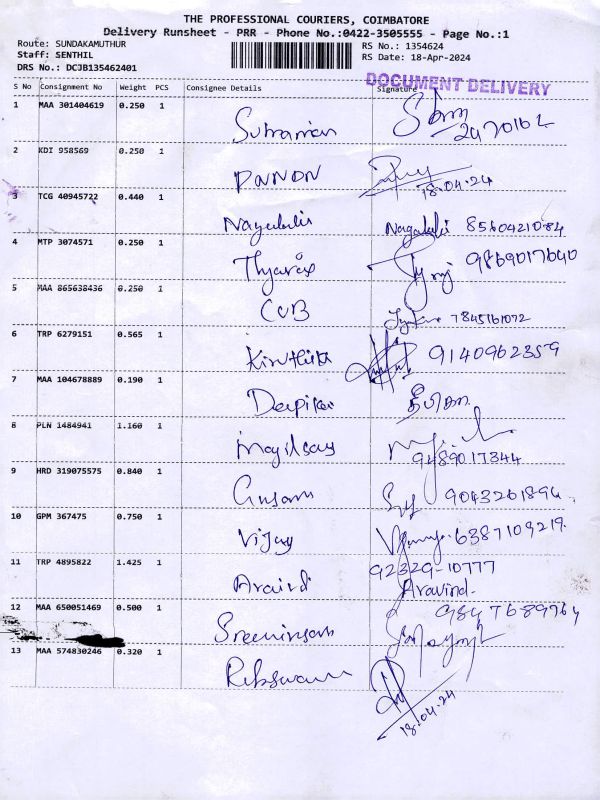 THE PROFESSIONAL COURIERS, COIMBATORE
Delivery Runsheet - PRR - Phone No.:0422-3505555 - Page No.:1
Route: SUNDAKAMUTHUR RS No.: 1354624
Staff: SENTHIL RS Date: 18-Apr-2024
DRS No.: DCJB135462401
DOCUMENT DELIVERY
S No Consignment No Weight PCS Consignee Details Signature
1 MAA 301404619 0.250 1
2 KDI 958569 0.250 1
18.04.24
3 TCG 40945722 0.440 1
Nagalulii Nagalulii 8560421084
4 MTP 3074571 0.250 1
9869017640
5 MAA 865638436 0.250 1
CUB 7845161072
6 TRP 6279151 0.565 1
Kiruthika 9140962359
7 MAA 104678889 0.190 1
Deepika தீபிகா
8 PLN 1484941 1.160 1
Mayilsay 9489017344
9 HRD 319075575 0.840 1
9043261894
10 GPM 367475 0.750 1
Vijay 6387109219
11 TRP 4895822 1.425 1
92329-10777
Aravind Aravind
12 MAA 650051469 0.500 1
13 MAA 574830246 0.320 1
18.04.24